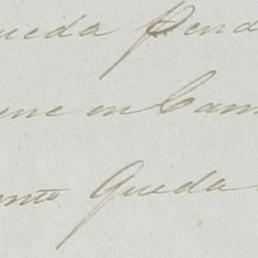 ueda Pend
ene en Cam
ento Queda